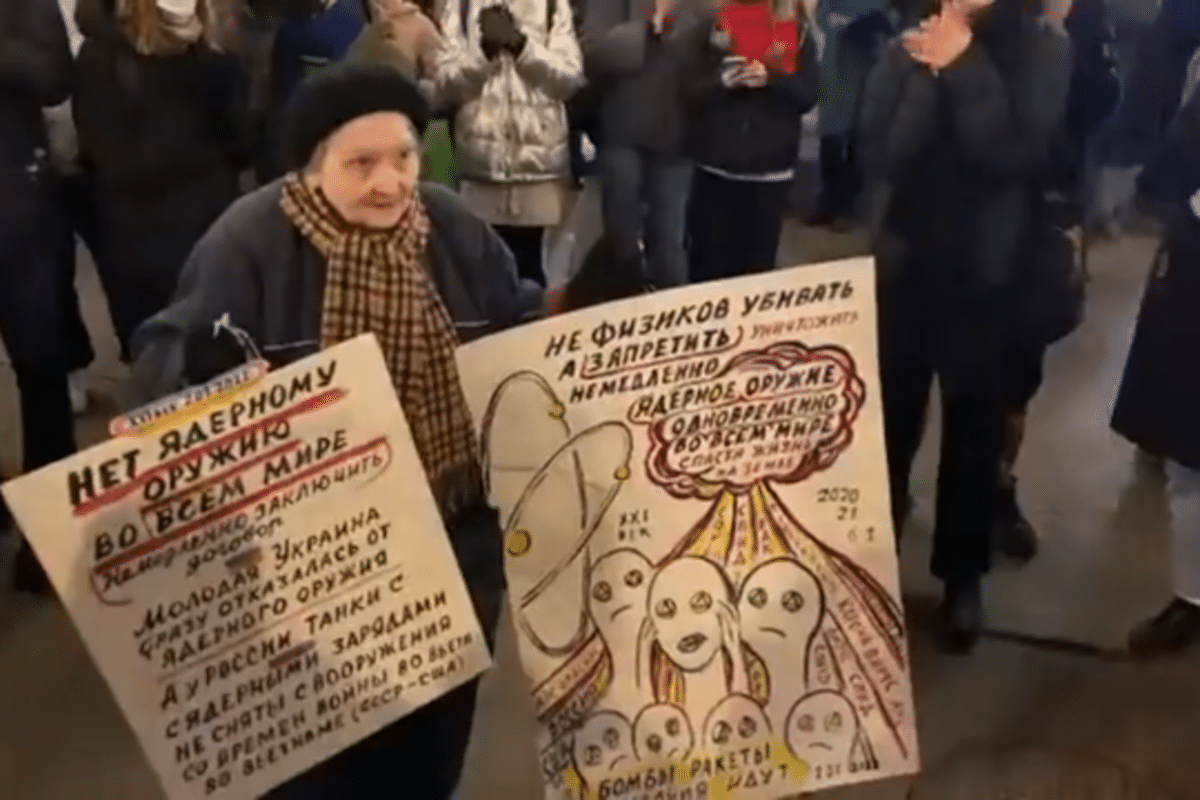 НЕТ ЯДЕРНОМУ
ОРУЖИЮ
ВО ВСЕМ МИРЕ
НЕМЕДЛЕННО ЗАКЛЮЧИТЬ
ДОГОВОР
МОЛОДАЯ УКРАИНА
СРАЗУ ОТКАЗАЛАСЬ ОТ
ЯДЕРНОГО ОРУЖИЯ
А У РОССИИ ТАНКИ С
ЯДЕРНЫМИ ЗАРЯДАМИ
НЕ СНЯТЫ С ВООРУЖЕНИЯ
СО ВРЕМЕН ВОЙНЫ ВО ВЬЕТН
ВО ВЬЕТНАМЕ (СССР-США)
НЕ ФИЗИКОВ УБИВАТЬ
А ЗАПРЕТИТЬ УНИЧТОЖИТЬ
НЕМЕДЛЕННО
ЯДЕРНОЕ ОРУЖИЕ
ОДНОВРЕМЕННО
ВО ВСЕМ МИРЕ
СПАСТИ ЖИЗНЬ
НА ЗЕМЛЕ
2020
21
XXI
ВЕК
БОМБЫ РАКЕТЫ
ИДУТ